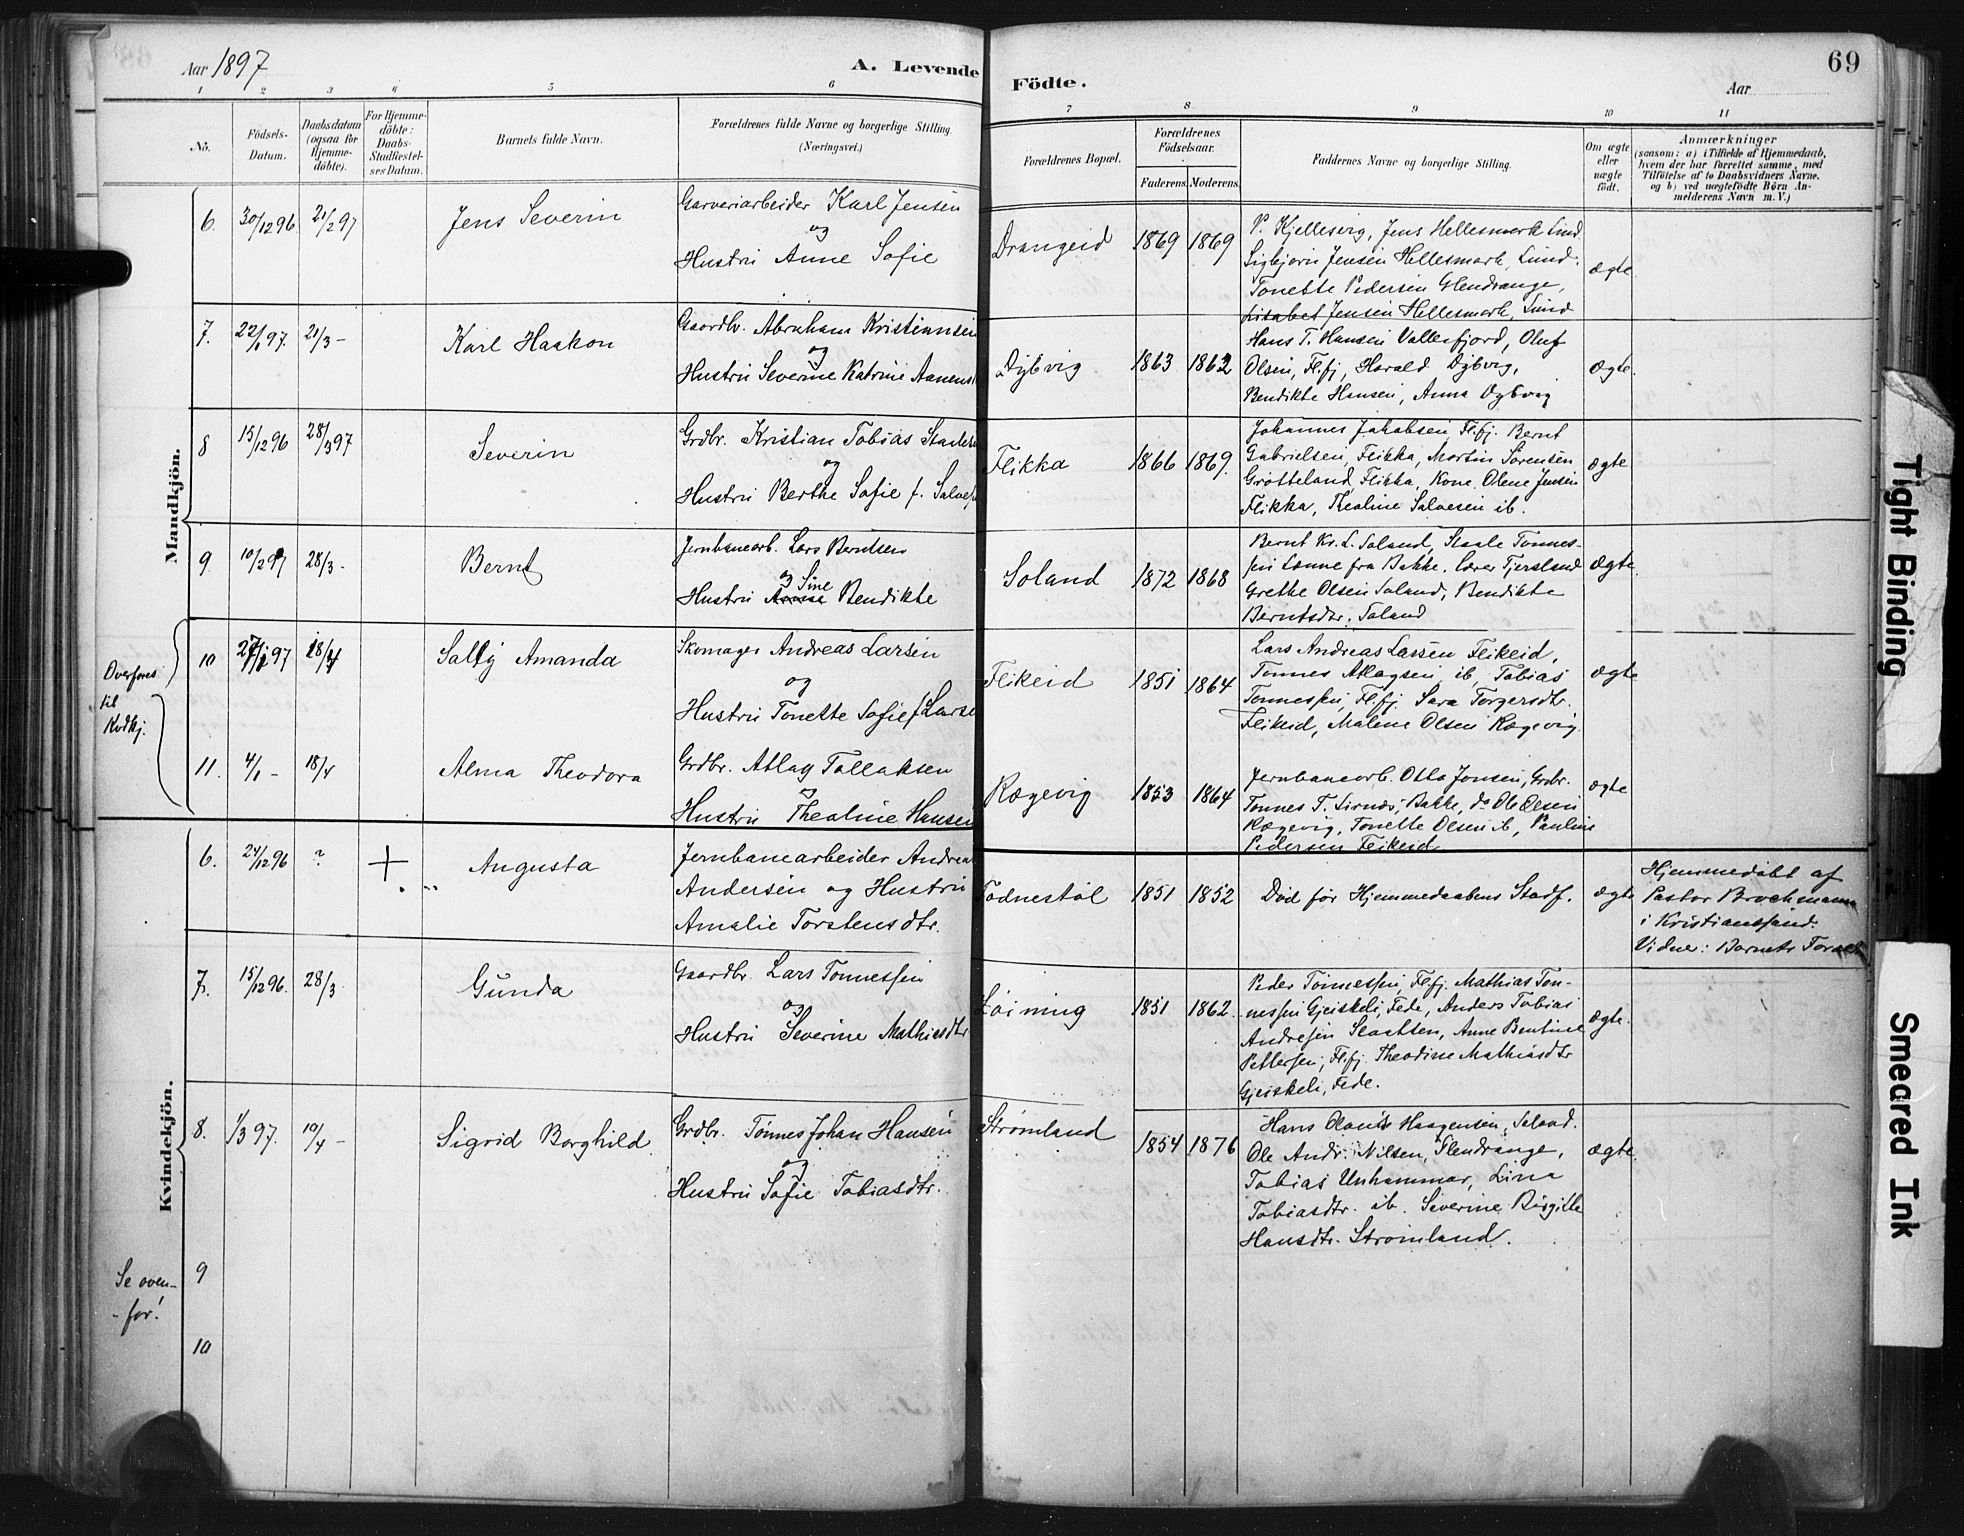 Aar 1897
A. Levende Födte.
Aar
69
1 2 3 4 5 6 7 8 9 10 11
No.
Födsels-Datum.
Daabsdatum (ogsaa for Hjemme-döbte).
For Hjemme-döbte: Daabs-Stadfæstel-ses Datum.
Barnets fulde Navn.
Forældrenes fulde Navne og borgerlige Stilling. (Næringsvei.)
Forældrenes Bopæl.
Forældrenes Födselsaar.
Faderens. Moderens.
Faddernes Navne og borgerlige Stilling.
Om ægte eller uægte födt.
Anmærkninger
(saasom: a) i Tilfælde af Hjemmedaab,
hvem der har forrettet samme, med
Tilföielse af to Daabsvidners Navne.
og b) ved uægtefödte Börn An-
melderens Navn m. V.)
Mandkjön.
6. 30/12 96 21/2 97 Jens Severin
Garveriarbeider Karl Jensen
og
Hustru Anne Sofie
Drangeid 1869 1869
P. Kjellesvig, Jens Hellesmark Lund
Sigbjørn Jensen Hellesmark, Lund.
Tonette Pedersen Glendrange,
Lisabet Jensen Hellesmark, Lund
ægte
7. 22/1 97. 21/3 - Karl Haakon
Gaardbr. Abraham Kristiansen
og
Hustru Severine Katrine Aanens
Dybvig 1863 1862
Hans T. Hansen Vallesfjord, Oluf
Olsen, Flfj, Harald Dybvig,
Bendikte Hansen, Anna Dybvig
ægte.
8 15/12 96 28/3 97 Severin
Grdbr. Kristian Tobias
og
Hustru Berthe Sofie f. Salves
Flikka 1866 1869.
Johannes Jakobsen Flfj. Bernt
Gabrielsen, Flikka, Martin Sörensen
Grøtteland, Flikka, Kone Olene Jensen
Flikka, Thealine Salvesen ib.
ægte
9. 10/2 97 28/3 - Bernt
Jernbanearb. Lars Berntsen
og Sine
Hustru Bendikte
Soland 1872 1868
Bernt Kr. L. Soland, Staale Tønnes-
sen Lønne fra Bakke. Lærer Tjersland
Grethe Olsen Soland, Bendikte
Berntsdtr. Soland
ægte.
Overføres
til
Kvdkj.
10 97 18/4 Sally Amanda
Skomager Andreas Larsen
og
Hustru Tonette Sofie f. Larse
Flikeid 1851 1864
Lars Andreas Larsen Flikeid,
Tønnes Atlagsen ib, Tobias
Tønnessen, Flfj. Sara Torgersdtr.
Flikeid, Malene Olsen Rægevig.
ægte
11. 4/1 - 18/4 Alma Theodora
Grdbr. Atlag Tollaksen
og
Hustru Thealine Hansen
Rægevig 1853 1864
Jernbanearb. Otto Jonsen, Grdbr.
Tønnes T. Sirnæs, Bakke, do Ole Olsen
Rægevig, Tonette Olsen ib, Pauline
Pedersen Flikeid
ægte
Kvindekjön.
6. 24/12 96 ? + Angusta
Jernbanearbeider Andreas
Andersen og Hustru
Amalie Torstensdtr.
Todnestøl 1851 1852
Død før Hjemmedaabens Stadf.
ægte
Hjemmedøbt af
Pastor Brochmann
i Kristianssand.
Vidner: Barnets Foræl
7. 15/12 96. 28/3 Gunda
Gaardbr. Lars Tønnessen
og
Hustru Severine Mathisdtr
Løining 1851 1862.
Peder Tønnessen, Flfj. Mathias Tøn-
nessen Gjeiskeli, Fede, Anders Tobias
Andresen Slaatten, Anne Bentine
Pettersen, Flfj. Theodine Mathiasdtr
Gjeiskeli, Fede.
ægte.
8. 1/3 97. 10/4 - Sigrid Borghild.
Grdbr. Tönnes Johan Hansen
og
Hustru Sofie Tobiasdtr.
Strømland 1854 1876
Hans Olaus Haagensen, Soland.
Ole Andr. Nilsen, Flendrange,
Tobias Unhammar, Lina
Tobiasdtr. ib. Severine Birgitte
Hansdtr. Strømland.
ægte.
Se oven-
-for!
9
10
Tight Binding
Smeared Ink